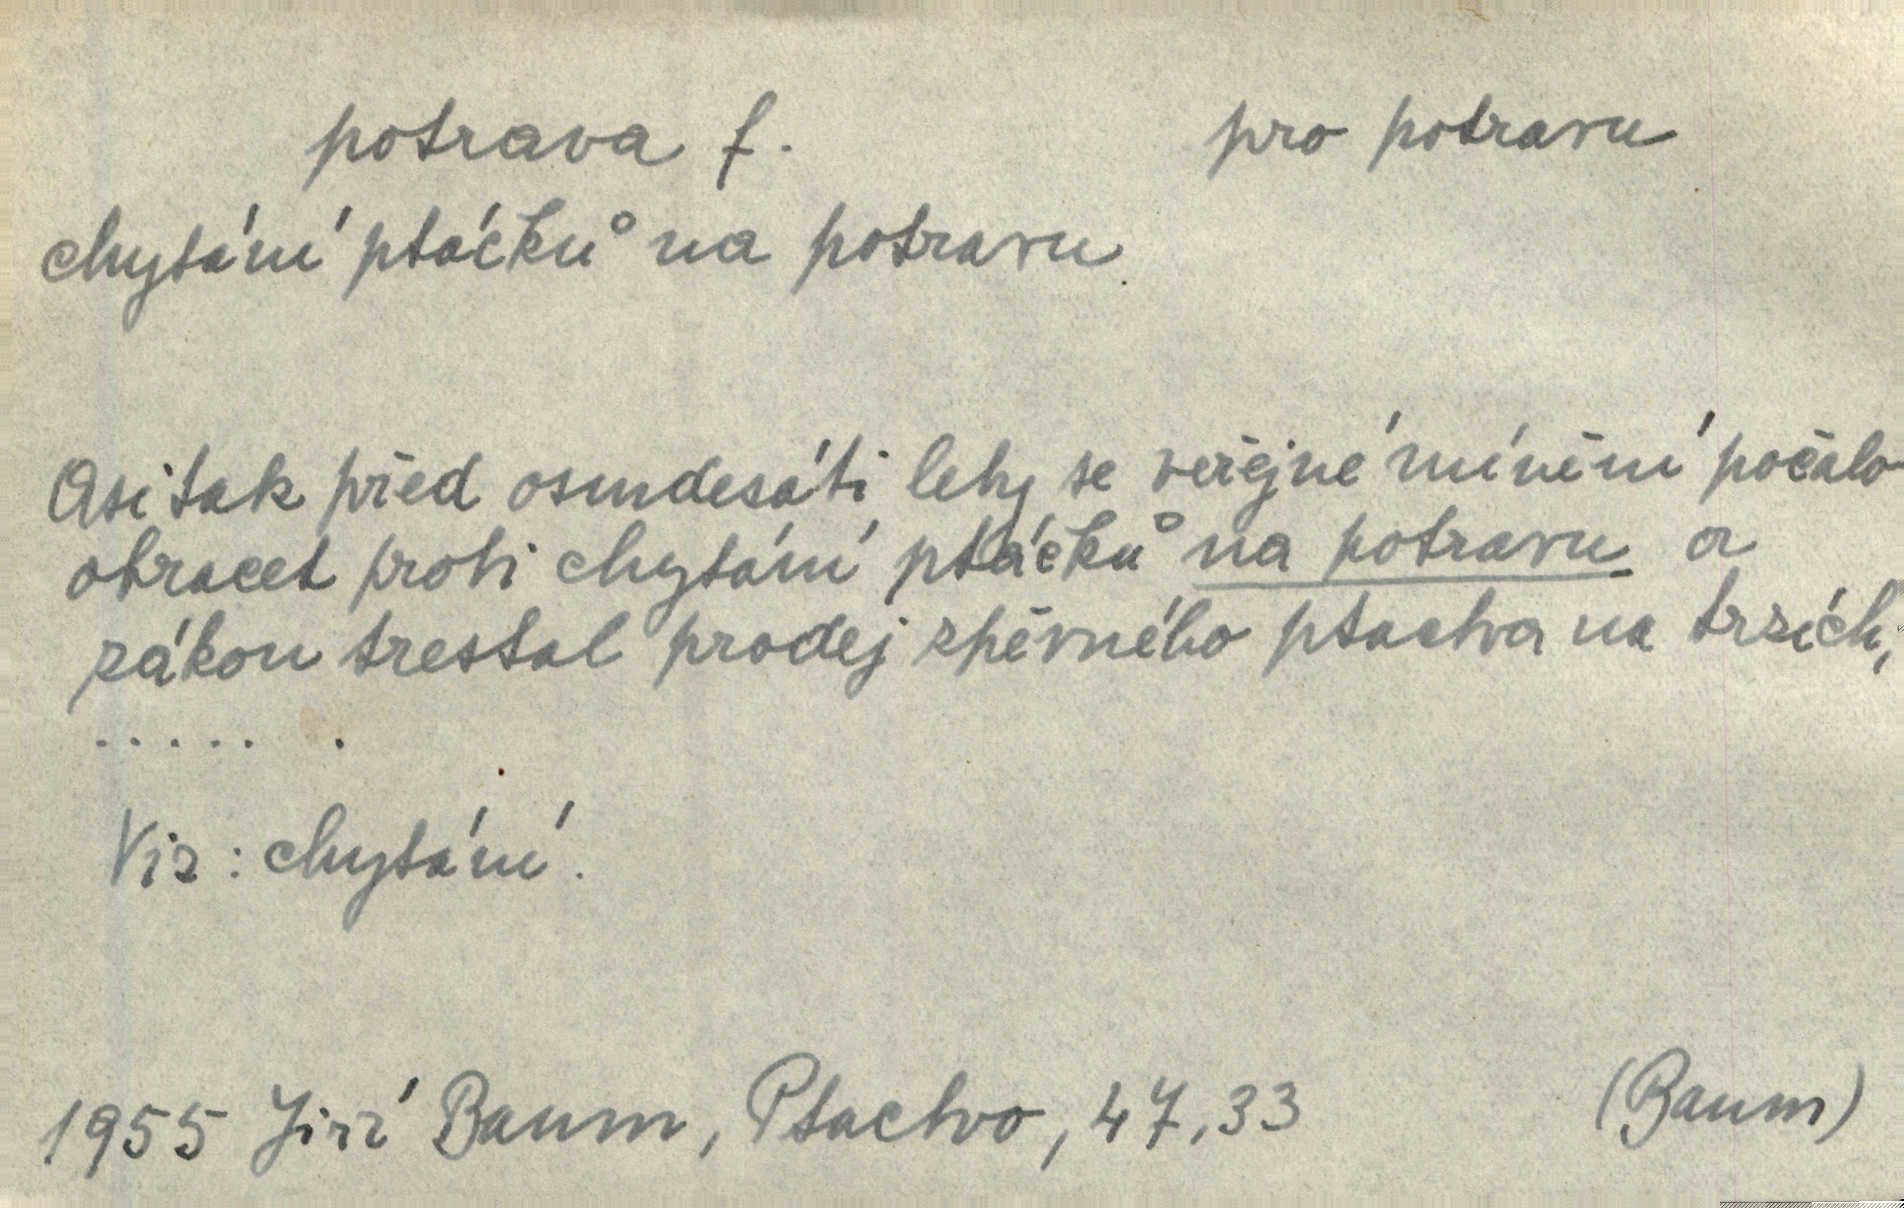 potrava f. pro potravu
chytání ptáčků na potravu.
Asi tak před osmdesáti lety se veřejné mínění počalo
obracet proti chytání ptáčků na potravu a
zákon trestal prodej zpěvného ptactva na trzích,
..... .
Viz: chytání.
1955 Jiří Baum, Ptactvo, 47,33 (Baum)